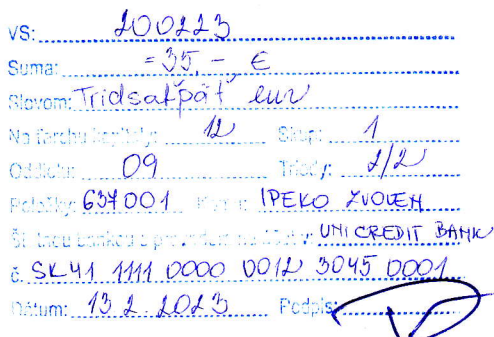 VS: 200223
Suma: =35,- €
Slovom: Tridsaťpäť eur
Na ťarchu kapitoly: 12 Skup: 1
Oddielu: 09 Triedy: 2/2
Položky: 637001 IPEKO ZVOLEN
UNICREDIT BANK
č. SK41 1111 0000 0012 3045 0001
Dátum: 13.2.2023 Podpis: